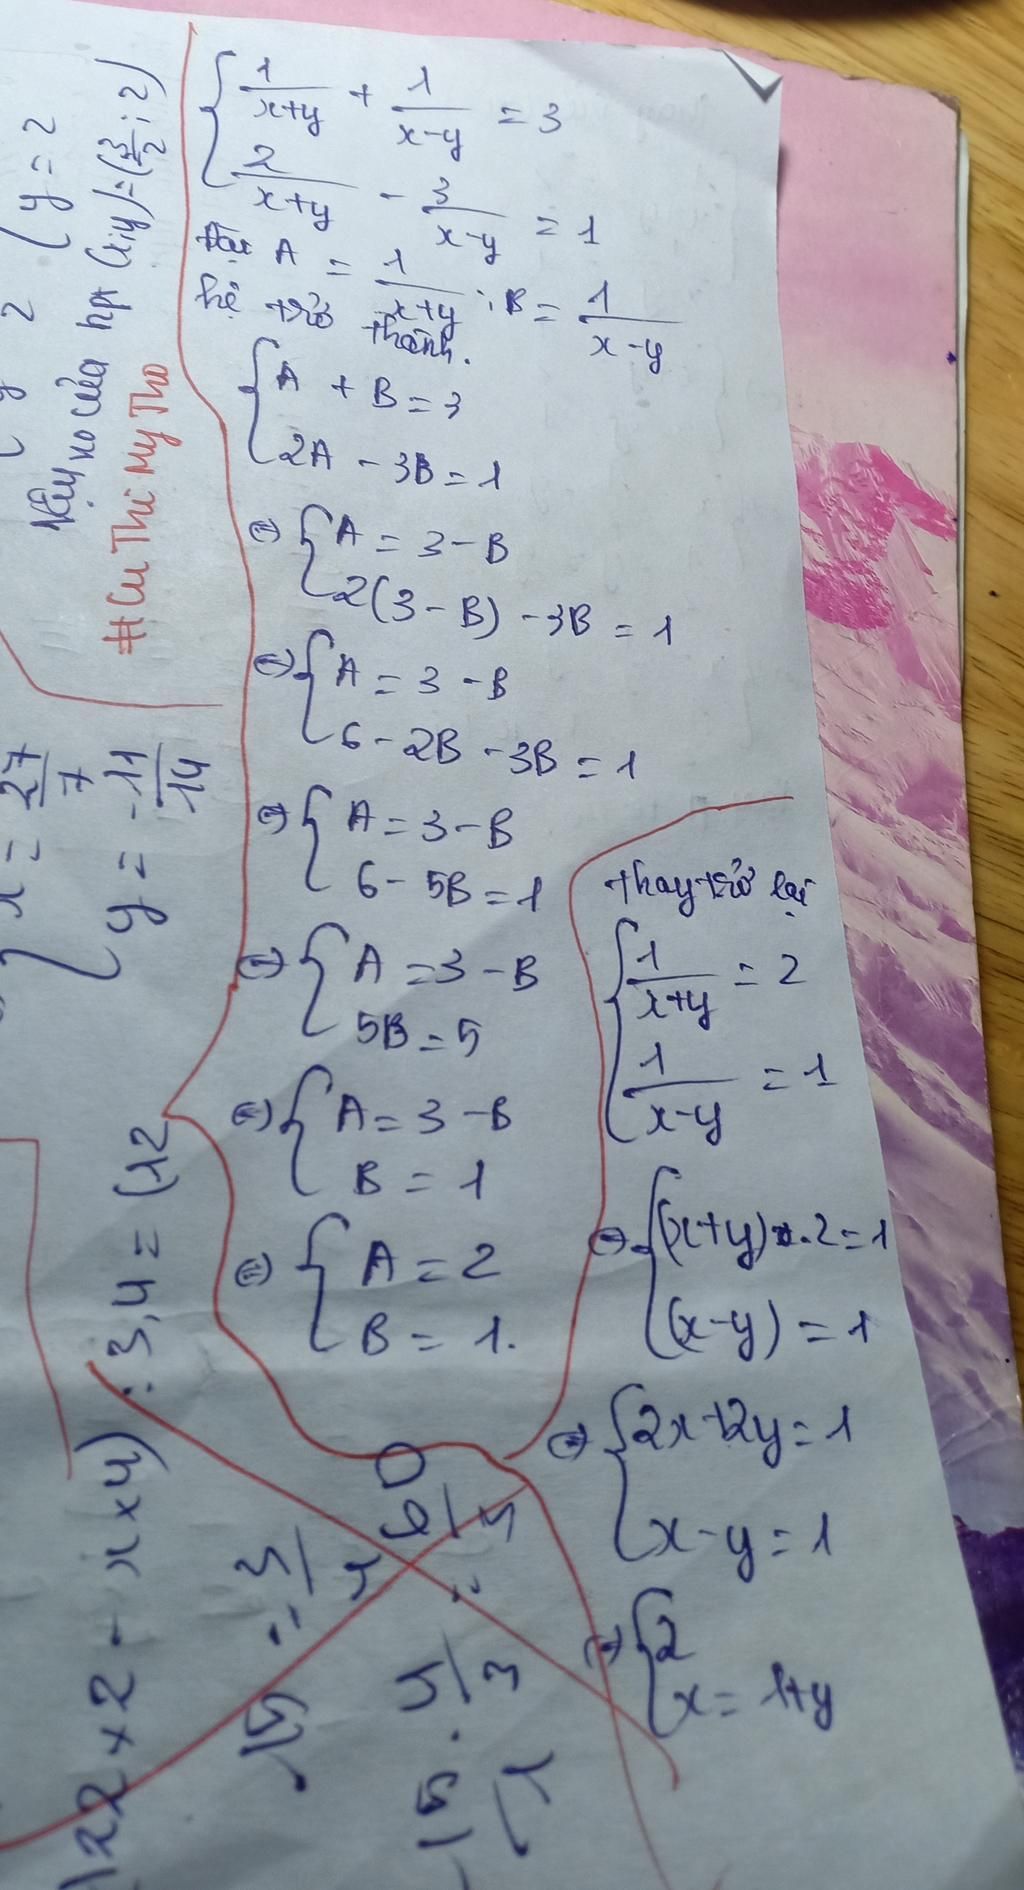 { 1/(x+y) + 1/(x-y) = 3
2/(x+y) - 3/(x-y) = 1
Đặt A = 1/(x+y) ; B = 1/(x-y)
hệ trở thành.
{ A + B = 3
2A - 3B = 1
⇔ { A = 3 - B
2(3 - B) - 3B = 1
⇔ { A = 3 - B
6 - 2B - 3B = 1
⇔ { A = 3 - B
6 - 5B = 1
⇔ { A = 3 - B
5B = 5
⇔ { A = 3 - B
B = 1
⇔ { A = 2
B = 1.
thay trở lại
{ 1/(x+y) = 2
1/(x-y) = 1
⇔ { (x+y) . 2 = 1
(x-y) = 1
⇔ { 2x+2y = 1
x-y = 1
⇔ { 2
x = 1+y
y = 2
Vậy no của hpt (x;y) = (3/2 ; 2)
#Cu Thi My Tho
x = 27/7
y = -11/14
122 x 2 - x x 4) : 3,4 = (12